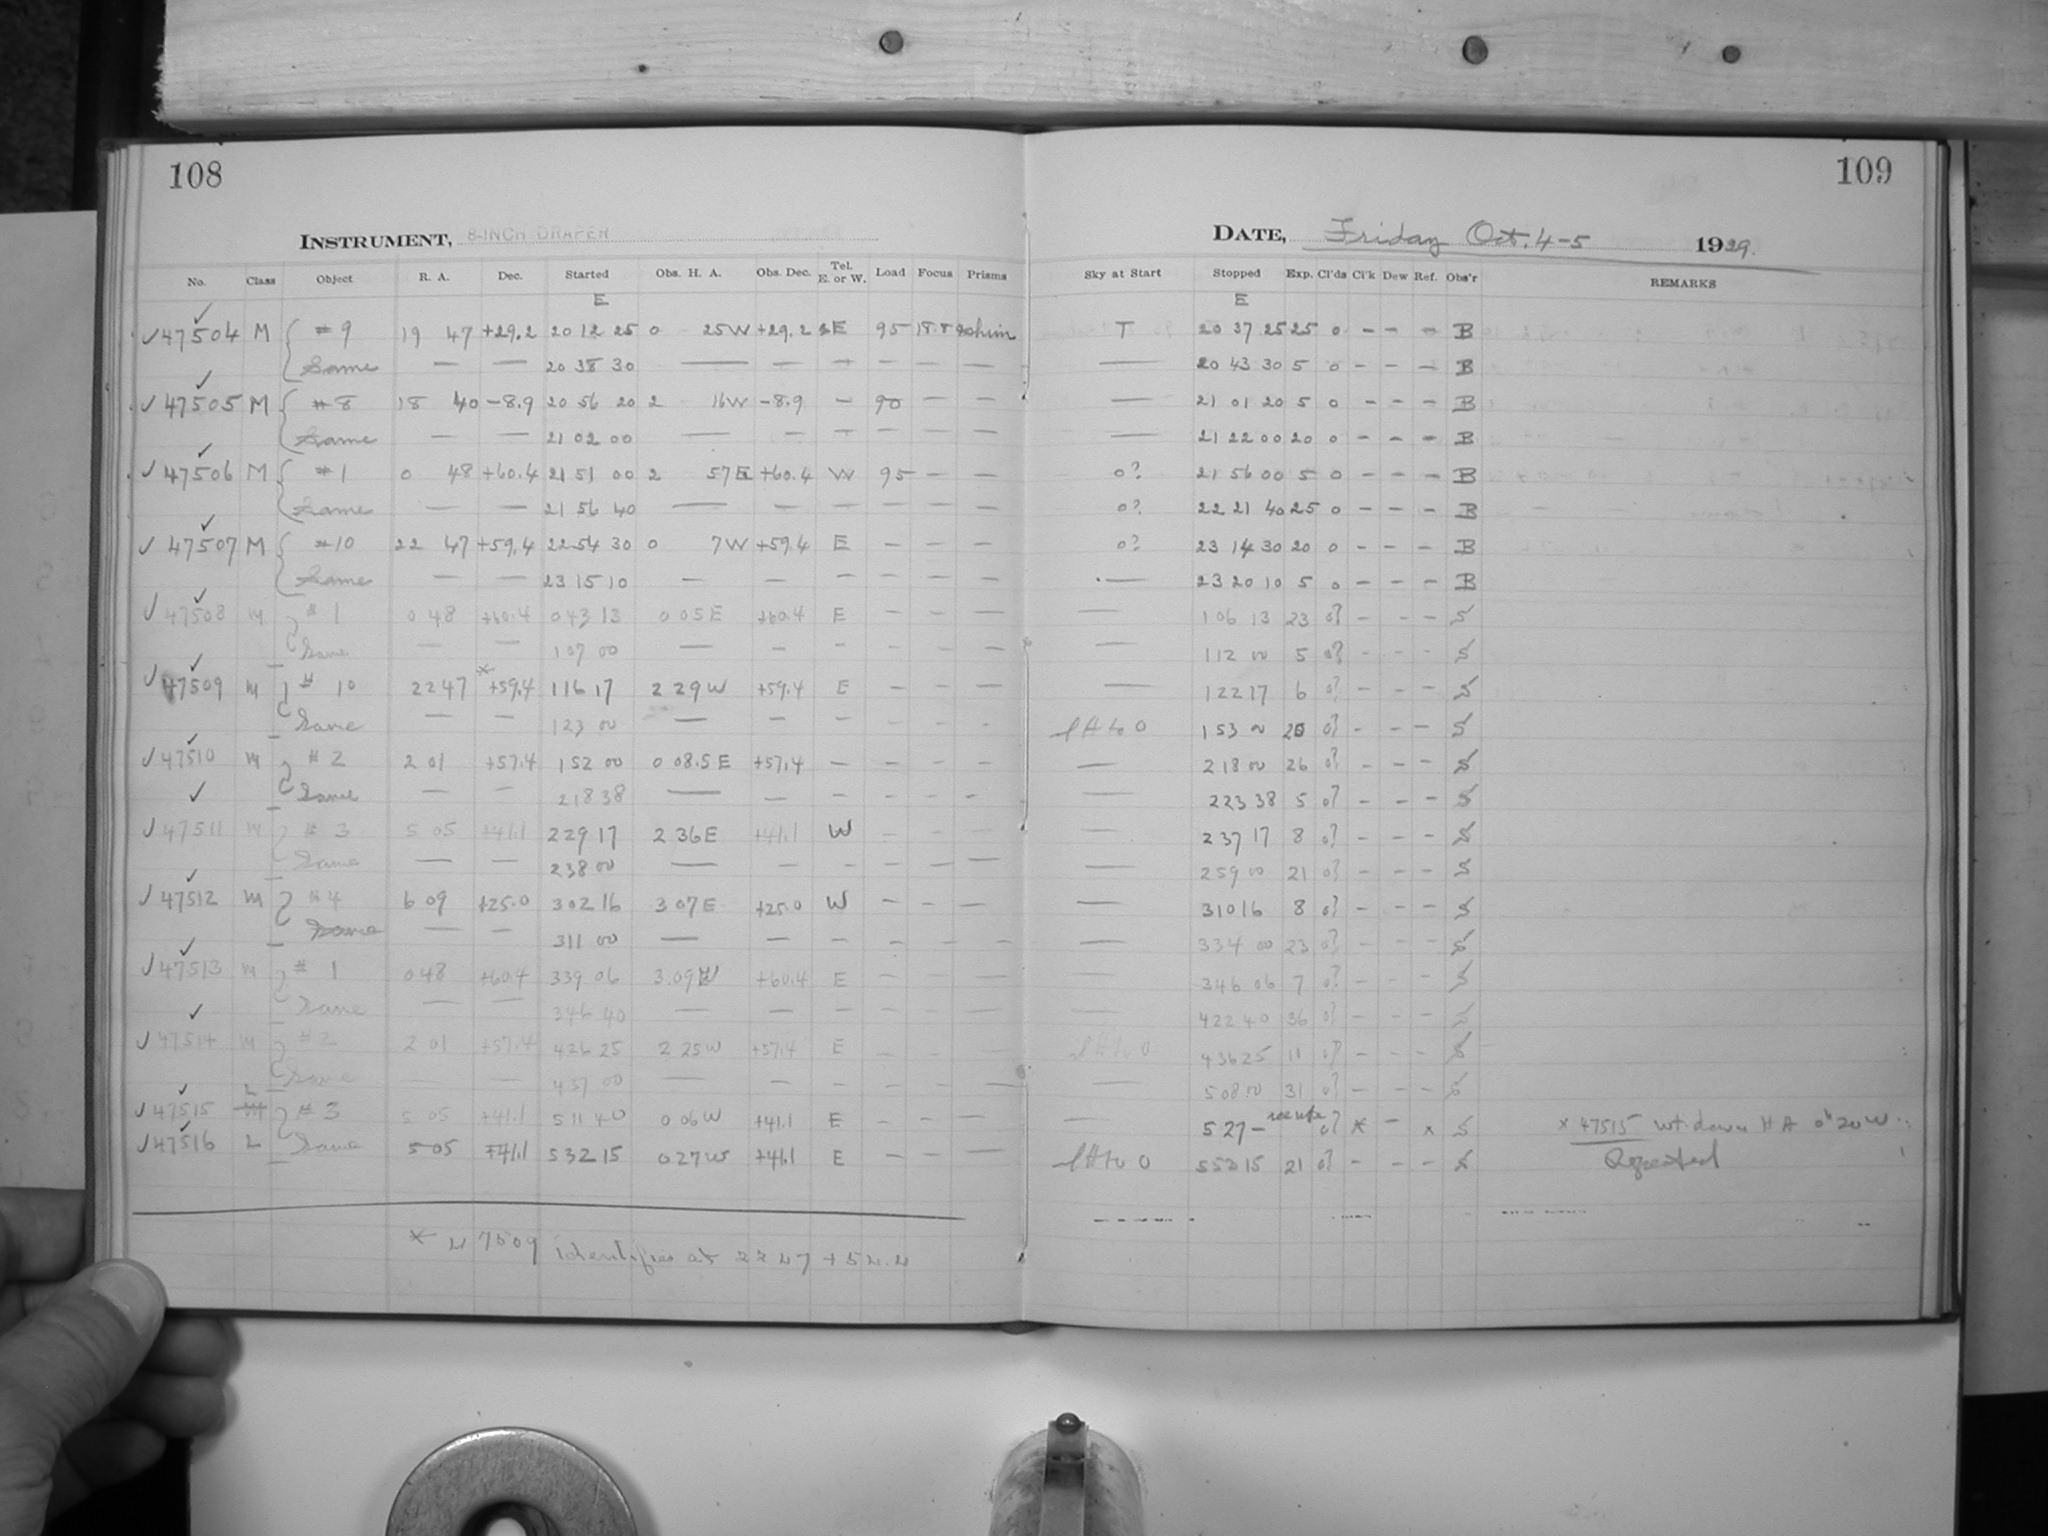 108
INSTRUMENT, 8-INCH DRAPER
No. Class Object R. A. Dec. Started Obs. H. A. Obs. Dec. Tel. E. or W. Load Focus Prisms
E
✓ 47504 M #9 19 47 +29.2 20 12 25 0 25W +29.2 E 95 18.8
Same — — 20 38 30 — — — — — —
✓ 47505 M #8 18 40 -8.9 20 56 20 2 16W -8.9 — 90 — —
Same — — 21 02 00 — — — — — —
✓ 47506 M #1 0 48 +60.4 21 51 00 2 57E +60.4 W 95 — —
Same — — 21 56 40 — — — — — —
✓ 47507 M #10 22 47 +59.4 22 54 30 0 7W +59.4 E — — —
Same — — 23 15 10 — — — — — —
✓ 47508 M #1 0 48 +60.4 0 43 13 0 05E +60.4 E — — —
Same — — 1 07 00 — — — — — —
✓ 47509 M #10 22 47 *+59.4 1 16 17 2 29W +59.4 E — — —
Same — — 1 23 00 — — — — — —
✓ 47510 M #2 2 01 +57.4 1 52 00 0 08.5E +57.4 — — — —
Same — — 2 18 38 — — — — — —
✓ 47511 M #3 5 05 +41.1 2 29 17 2 36E +41.1 W — — —
Same — — 2 38 00 — — — — — —
✓ 47512 M #4 6 09 +25.0 3 02 16 3 07E +25.0 W — — —
Same — — 3 11 00 — — — — — —
✓ 47513 M #1 0 48 +60.4 3 39 06 3.09W +60.4 E — — —
Same — — 3 46 40 — — — — — —
✓ 47514 M #2 2 01 +57.4 4 26 25 2 25W +57.4 E — — —
Same — — 4 37 00 — — — — — —
✓ 47515 L #3 5 05 +41.1 5 11 40 0 06W +41.1 E — — —
✓ 47516 L Same 5 05 +41.1 5 32 15 0 27W +41.1 E — — —
* 47509 identifies at 22 47 + 54.4
109
DATE, Friday Oct. 4-5 1929.
Sky at Start Stopped Exp. Cl'ds Cl'k Dew Ref. Obs'r REMARKS
E
T 20 37 25 25 0 — — — B
— 20 43 30 5 0 — — — B
— 21 01 20 5 0 — — — B
— 21 22 00 20 0 — — — B
0? 21 56 00 5 0 — — — B
0? 22 21 40 25 0 — — — B
0? 23 14 30 20 0 — — — B
— 23 20 10 5 0 — — — B
— 1 06 13 23 0? — — — S
— 1 12 00 5 0? — — — S
— 1 22 17 6 0? — — — S
1 53 00 0? — — — S
— 2 18 00 26 0? — — — S
— 2 23 38 5 0? — — — S
— 2 37 17 8 0? — — — S
— 2 59 00 21 0? — — — S
— 3 10 16 8 0? — — — S
— 3 34 00 23 0? — — — S
— 3 46 06 7 0? — — — S
— 4 22 40 36 0? — — — S
4 36 25 11 0? — — — S
— 5 08 00 31 0? — — — S
— 5 27 — 0? * — x S x 47515 wt. down H A 0h 20 W
5 53 15 21 0? — — — S Repeated